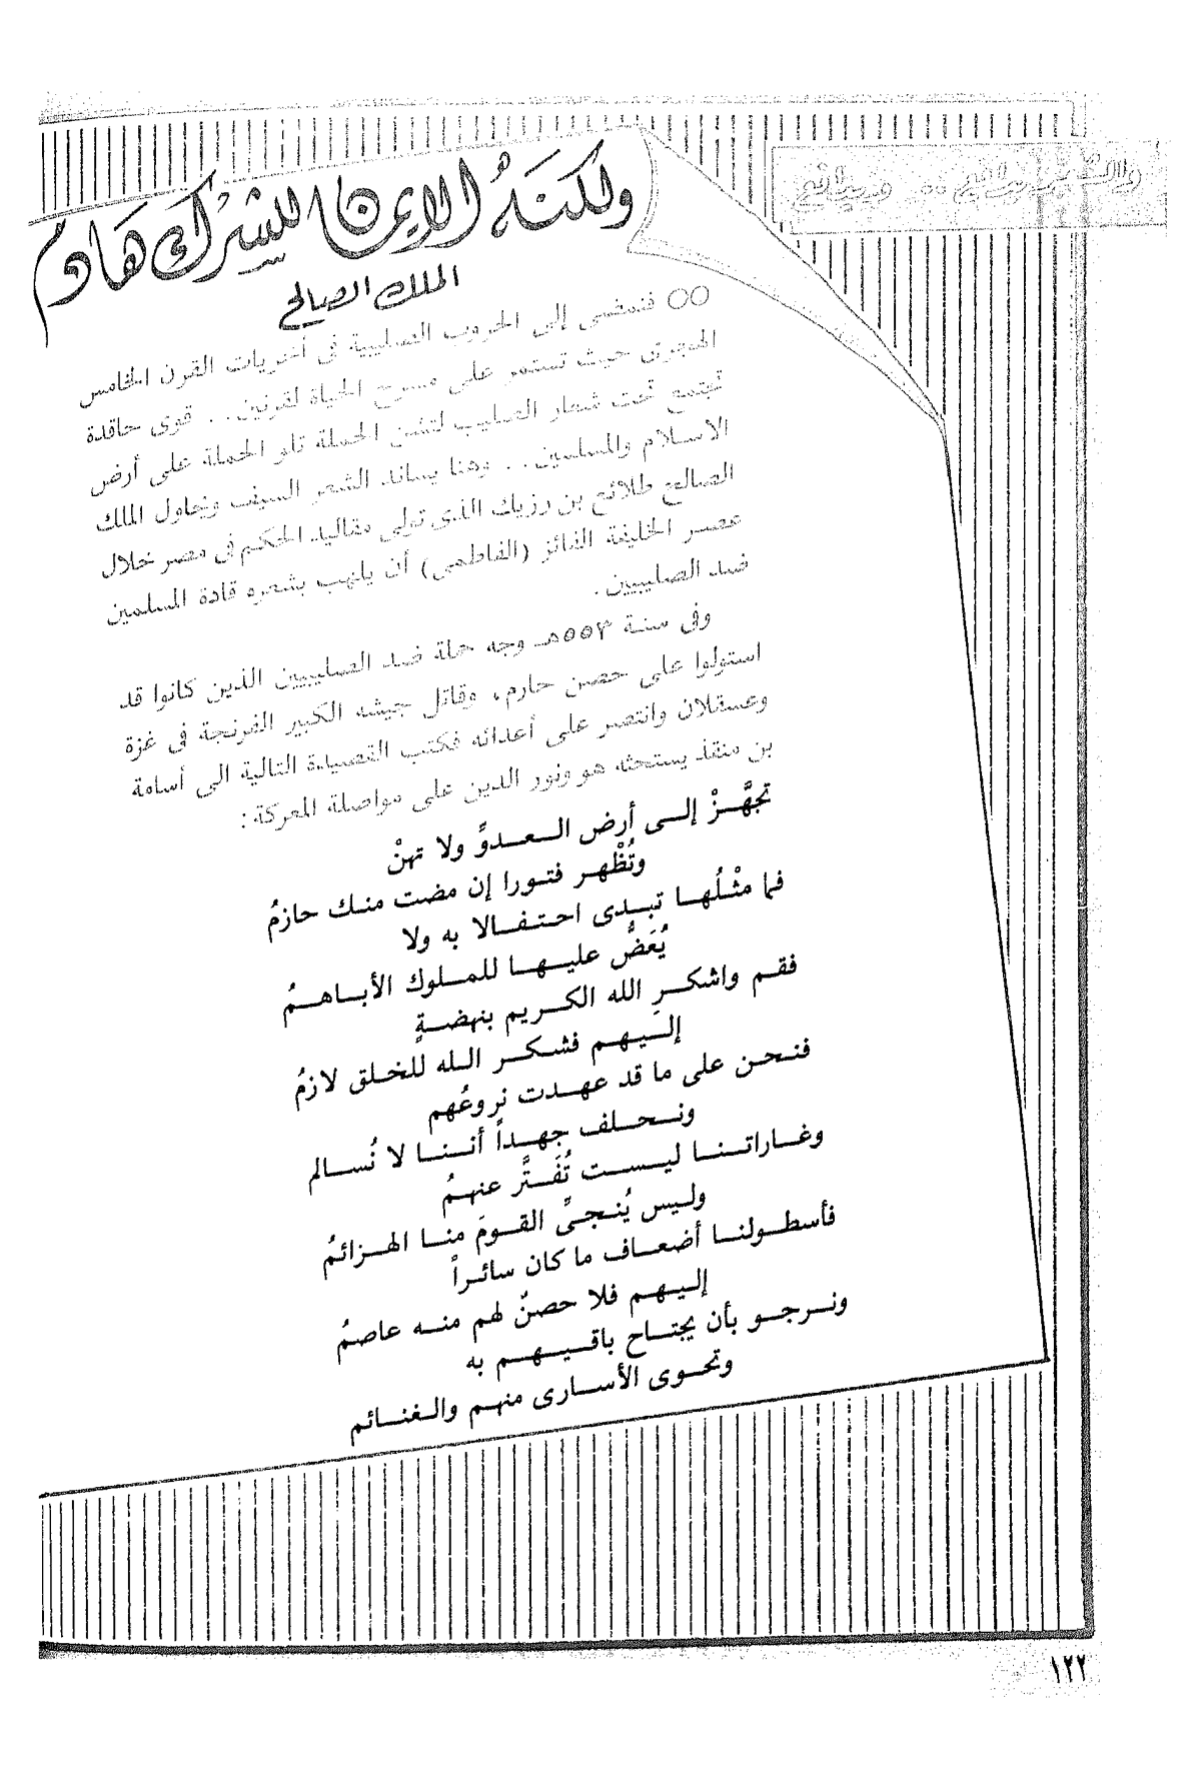 ولكنه الايمن للشرك هادم
الملك الصالح
○○ فنمضى إلى الحروب الصليبية فى أخريات القرن الخامس
الهجرى حيث تستمر على مسرح الحياة لقرنين . . قوى حاقدة
تجتمع تحت شعار الصليب لتشن الحملة تلو الحملة على أرض
الاسلام والمسلمين . . وهنا يساند الشعر السيف ويحاول الملك
الصالح طلائع بن رزيك الذى تولى مقاليد الحكم فى مصر خلال
عصر الخليفة الفائز (الفاطمى) أن يلهب بشعره قادة المسلمين
ضد الصليبيين .
وفى سنة ٥٥٣هـ وجه حملة ضد الصليبيين الذين كانوا قد
استولوا على حصن حارم، وقاتل جيشه الكبير الفرنجة فى غزة
وعسقلان وانتصر على أعدائه فكتب القصيدة التالية الى أسامة
بن منقذ يستحثه هو ونور الدين على مواصلة المعركة :
تجهَّزْ إلى أرض العدوِّ ولا تهنْ
وتُظْهر فتورا إن مضت منك حازمُ
فما مثْلُها تبدى احتفالا به ولا
يُعَضُّ عليها للملوك الأباهمُ
فقم واشكرِ الله الكريم بنهضةٍ
إليهم فشكر الله للخلق لازمُ
فنحن على ما قد عهدت نروعُهم
ونحلف جهداً أننا لا نُسالم
وغاراتنا ليست تُفَتَّر عنهمُ
وليس يُنجىِّ القومَ منا الهزائمُ
فأسطولنا أضعاف ما كان سائراً
إليهم فلا حصنٌ لهم منه عاصمُ
ونرجو بأن يجتاح باقيهم به
وتحوى الأسارى منهم والغنائم
١٢٢